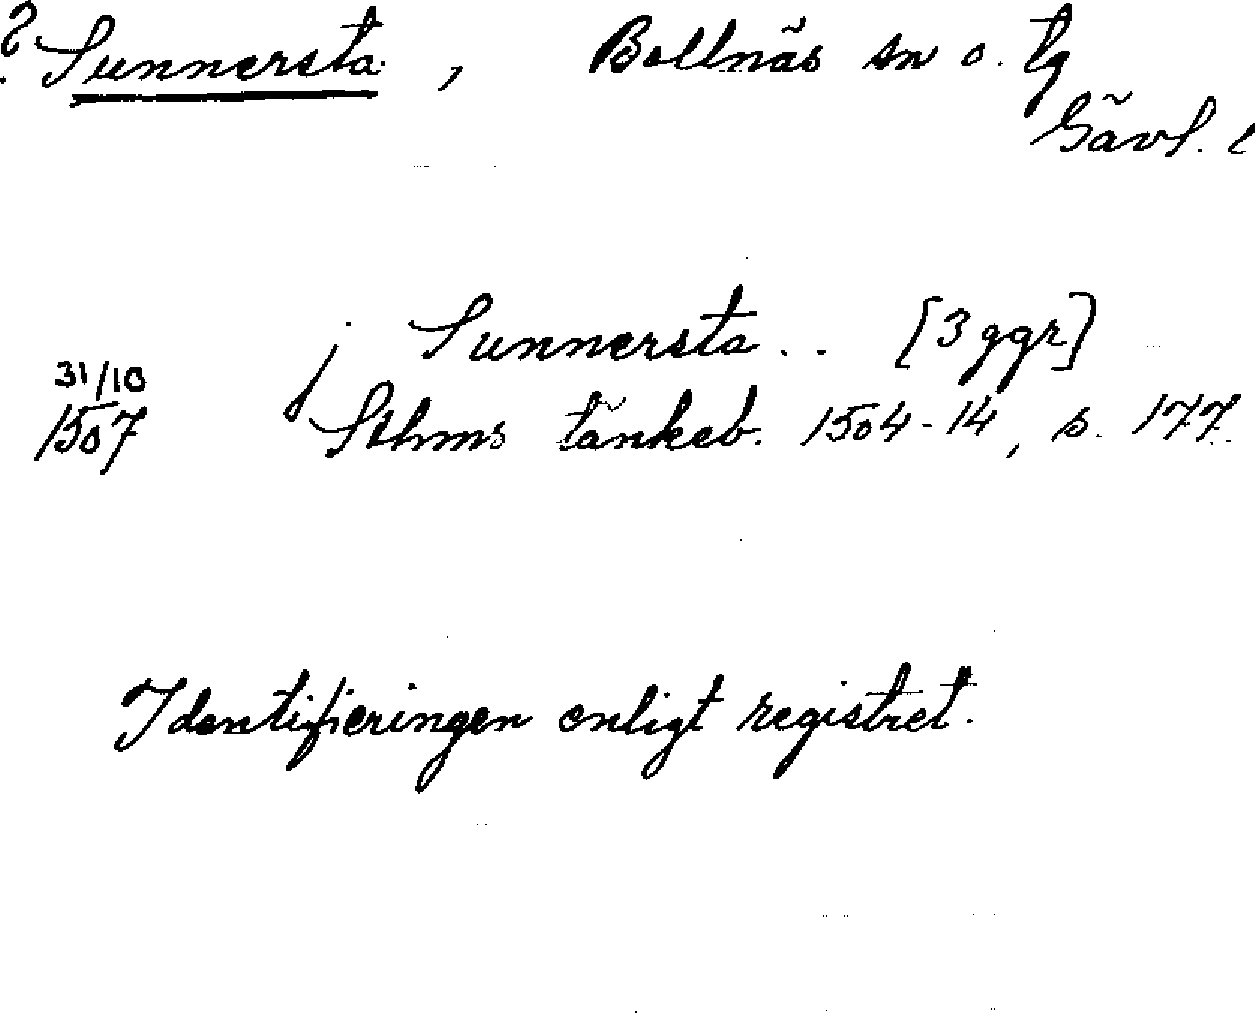 ? Sunnersta, Bollnäs sn o. tg
Gävl. l
j Sunnersta .. [3 ggr]
31/10
1507 Sthms tänkeb. 1504-14, s. 177.
Identifieringen enligt registret.